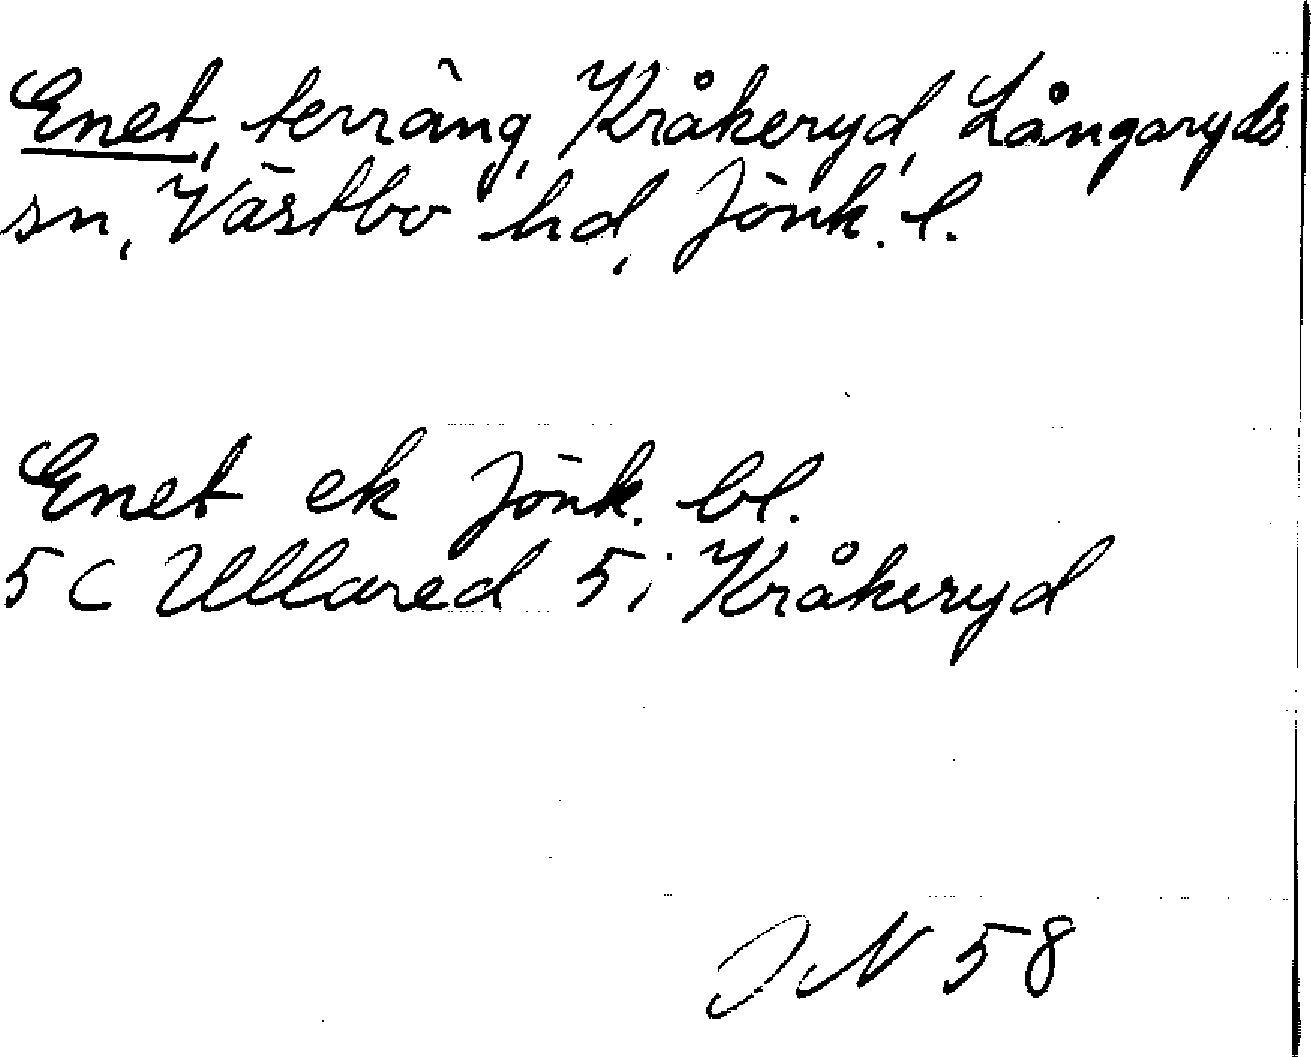 Enet, terräng, Kråkeryd, Långaryds
sn, Västbo hd, Jönk. l.
Enet ek Jönk. bl.
5 C Ullared 5 i Kråkeryd
JN 58